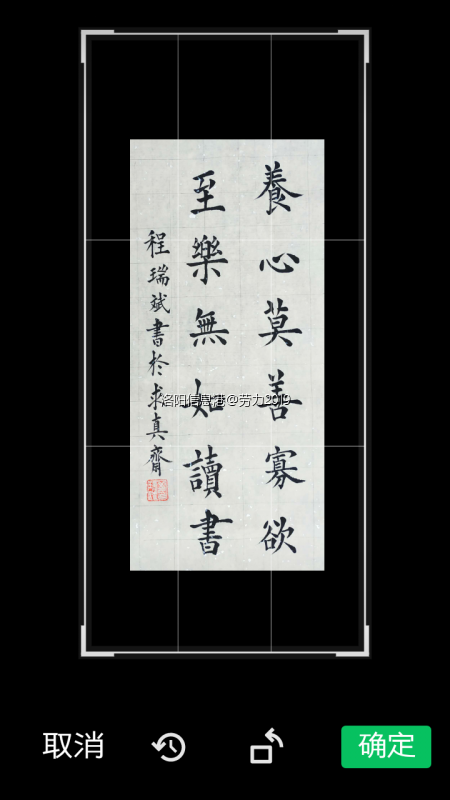 養心莫善寡欲
至樂無如讀書
程瑞斌書於求真齋
洛阳信息港@劳力2019
取消
确定